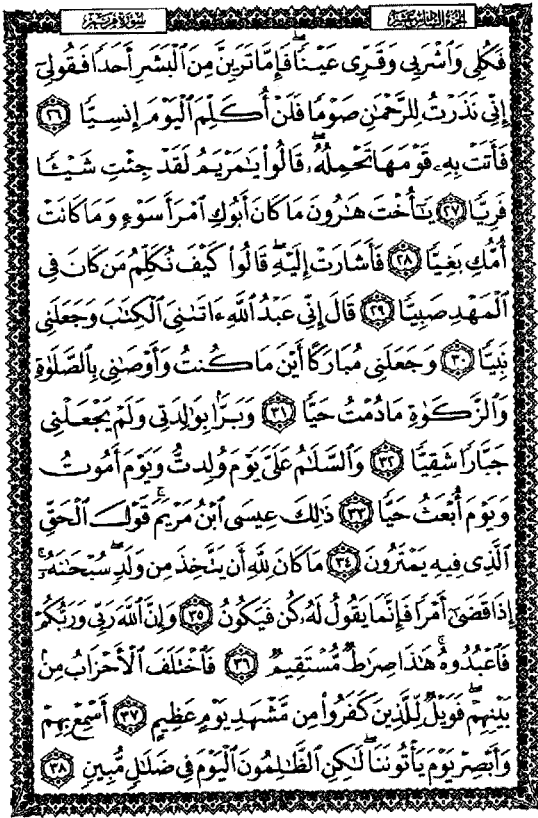 سورة مريم
الجزء السادس عشر
فَكُلِى وَٱشْرَبِى وَقَرِّى عَيْنًۭا ۖ فَإِمَّا تَرَيِنَّ مِنَ ٱلْبَشَرِ أَحَدًۭا فَقُولِىٓ
إِنِّى نَذَرْتُ لِلرَّحْمَٰنِ صَوْمًۭا فَلَنْ أُكَلِّمَ ٱلْيَوْمَ إِنسِيًّۭا ٢٦
فَأَتَتْ بِهِۦ قَوْمَهَا تَحْمِلُهُۥ ۖ قَالُوا۟ يَٰمَرْيَمُ لَقَدْ جِئْتِ شَيْـًۭٔا
فَرِيًّۭا ٢٧ يَٰٓأُخْتَ هَٰرُونَ مَا كَانَ أَبُوكِ ٱمْرَأَ سَوْءٍۢ وَمَا كَانَتْ
أُمُّكِ بَغِيًّۭا ٢٨ فَأَشَارَتْ إِلَيْهِ ۖ قَالُوا۟ كَيْفَ نُكَلِّمُ مَن كَانَ فِى
ٱلْمَهْدِ صَبِيًّۭا ٢٩ قَالَ إِنِّى عَبْدُ ٱللَّهِ ءَاتَىٰنِىَ ٱلْكِتَٰبَ وَجَعَلَنِى
نَبِيًّۭا ٣٠ وَجَعَلَنِى مُبَارَكًا أَيْنَ مَا كُنتُ وَأَوْصَٰنِى بِٱلصَّلَوٰةِ
وَٱلزَّكَوٰةِ مَا دُمْتُ حَيًّۭا ٣١ وَبَرًّۢا بِوَٰلِدَتِى وَلَمْ يَجْعَلْنِى
جَبَّارًۭا شَقِيًّۭا ٣٢ وَٱلسَّلَٰمُ عَلَىَّ يَوْمَ وُلِدتُّ وَيَوْمَ أَمُوتُ
وَيَوْمَ أُبْعَثُ حَيًّۭا ٣٣ ذَٰلِكَ عِيسَى ٱبْنُ مَرْيَمَ ۚ قَوْلَ ٱلْحَقِّ
ٱلَّذِى فِيهِ يَمْتَرُونَ ٣٤ مَا كَانَ لِلَّهِ أَن يَتَّخِذَ مِن وَلَدٍۢ ۖ سُبْحَٰنَهُۥٓ ۚ
إِذَا قَضَىٰٓ أَمْرًۭا فَإِنَّمَا يَقُولُ لَهُۥ كُن فَيَكُونُ ٣٥ وَإِنَّ ٱللَّهَ رَبِّى وَرَبُّكُمْ
فَٱعْبُدُوهُ ۚ هَٰذَا صِرَٰطٌۭ مُّسْتَقِيمٌۭ ٣٦ فَٱخْتَلَفَ ٱلْأَحْزَابُ مِنۢ
بَيْنِهِمْ ۖ فَوَيْلٌۭ لِّلَّذِينَ كَفَرُوا۟ مِن مَّشْهَدِ يَوْمٍ عَظِيمٍ ٣٧ أَسْمِعْ بِهِمْ
وَأَبْصِرْ يَوْمَ يَأْتُونَنَا ۖ لَٰكِنِ ٱلظَّٰلِمُونَ ٱلْيَوْمَ فِى ضَلَٰلٍۢ مُّبِينٍۢ ٣٨